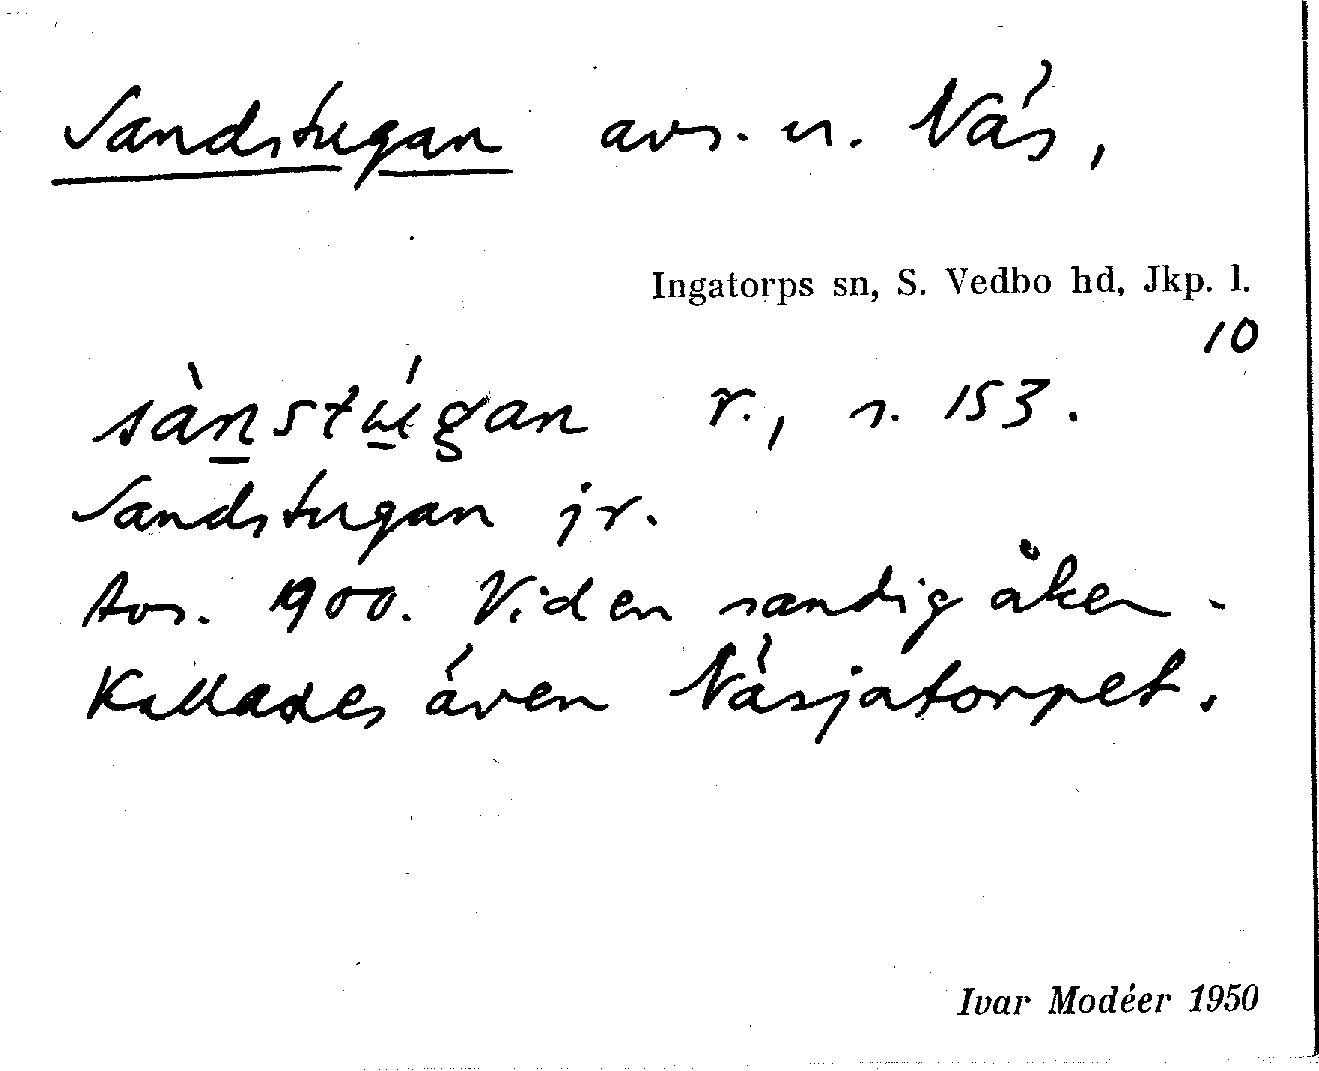 Sandstugan avs. u. Näs,
Ingatorps sn, S. Vedbo hd, Jkp. l.
10
sànstúgan r., s. 153.
Sandstugan jr.
Avs. 1900. Vid en sandig åker.
Kallades även Näsjatorpet.
Ivar Modéer 1950